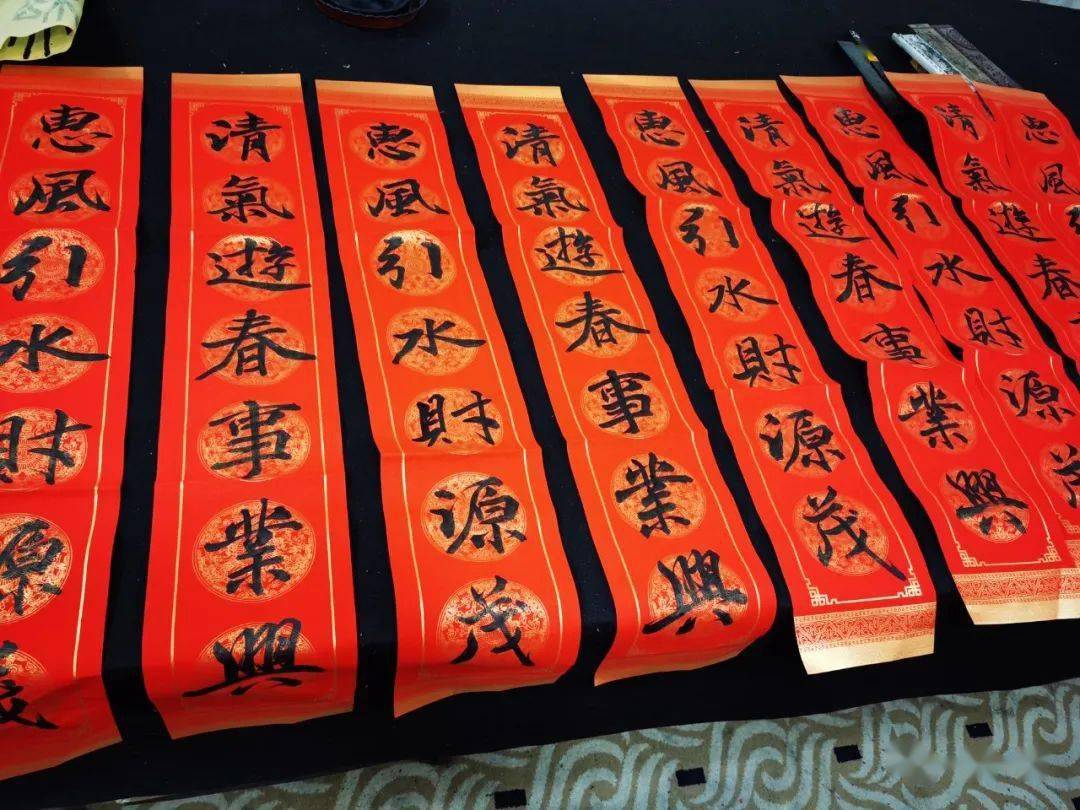 惠風引水財源茂
清氣遊春事業興
惠風引水財源茂
清氣遊春事業興
惠風引水財源茂
清氣遊春事業興
惠風引水財源茂
清氣遊春
惠風